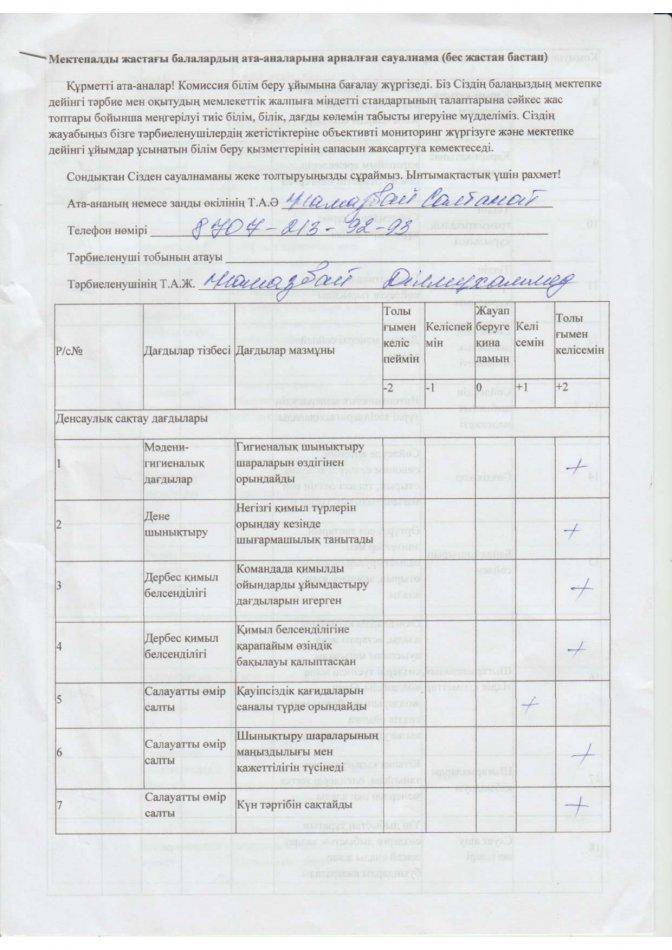 Мектепалды жастағы балалардың ата-аналарына арналған сауалнама (бес жастан бастап)
Құрметті ата-аналар! Комиссия білім беру ұйымына бағалау жүргізеді. Біз Сіздің балаңыздың мектепке
дейінгі тәрбие мен оқытудың мемлекеттік жалпыға міндетті стандартының талаптарына сәйкес жас
топтары бойынша меңгерілуі тиіс білім, білік, дағды көлемін табысты игеруіне мүдделіміз. Сіздің
жауабыңыз бізге тәрбиеленушілердің жетістіктеріне объективті мониторинг жүргізуге және мектепке
дейінгі ұйымдар ұсынатын білім беру қызметтерінің сапасын жақсартуға көмектеседі.
Сондықтан Сізден сауалнаманы жеке толтыруыңызды сұраймыз. Ынтымақтастық үшін рахмет!
Ата-ананың немесе заңды өкілінің Т.А.Ә Намазбай Салтанат
Телефон нөмірі 8707-213-92-93
Тәрбиеленуші тобының атауы
Тәрбиеленушінің Т.А.Ж. Намазбай Дінмухаммед
Р/с№ Дағдылар тізбесі Дағдылар мазмұны
Толы ғымен келіс пеймін
Келіспей мін
Жауап беруге қина ламын
Келі семін
Толы ғымен келісемін
-2 -1 0 +1 +2
Денсаулық сақтау дағдылары
1 Мәдени-гигиеналық дағдылар Гигиеналық шынықтыру шараларын өздігінен орындайды +
2 Дене шынықтыру Негізгі қимыл түрлерін орындау кезінде шығармашылық танытады +
3 Дербес қимыл белсенділігі Командада қимылды ойындарды ұйымдастыру дағдыларын игерген +
4 Дербес қимыл белсенділігі Қимыл белсенділігіне қарапайым өзіндік бақылауы қалыптасқан +
5 Салауатты өмір салты Қауіпсіздік қағидаларын саналы түрде орындайды +
6 Салауатты өмір салты Шынықтыру шараларының маңыздылығы мен қажеттілігін түсінеді +
7 Салауатты өмір салты Күн тәртібін сақтайды +